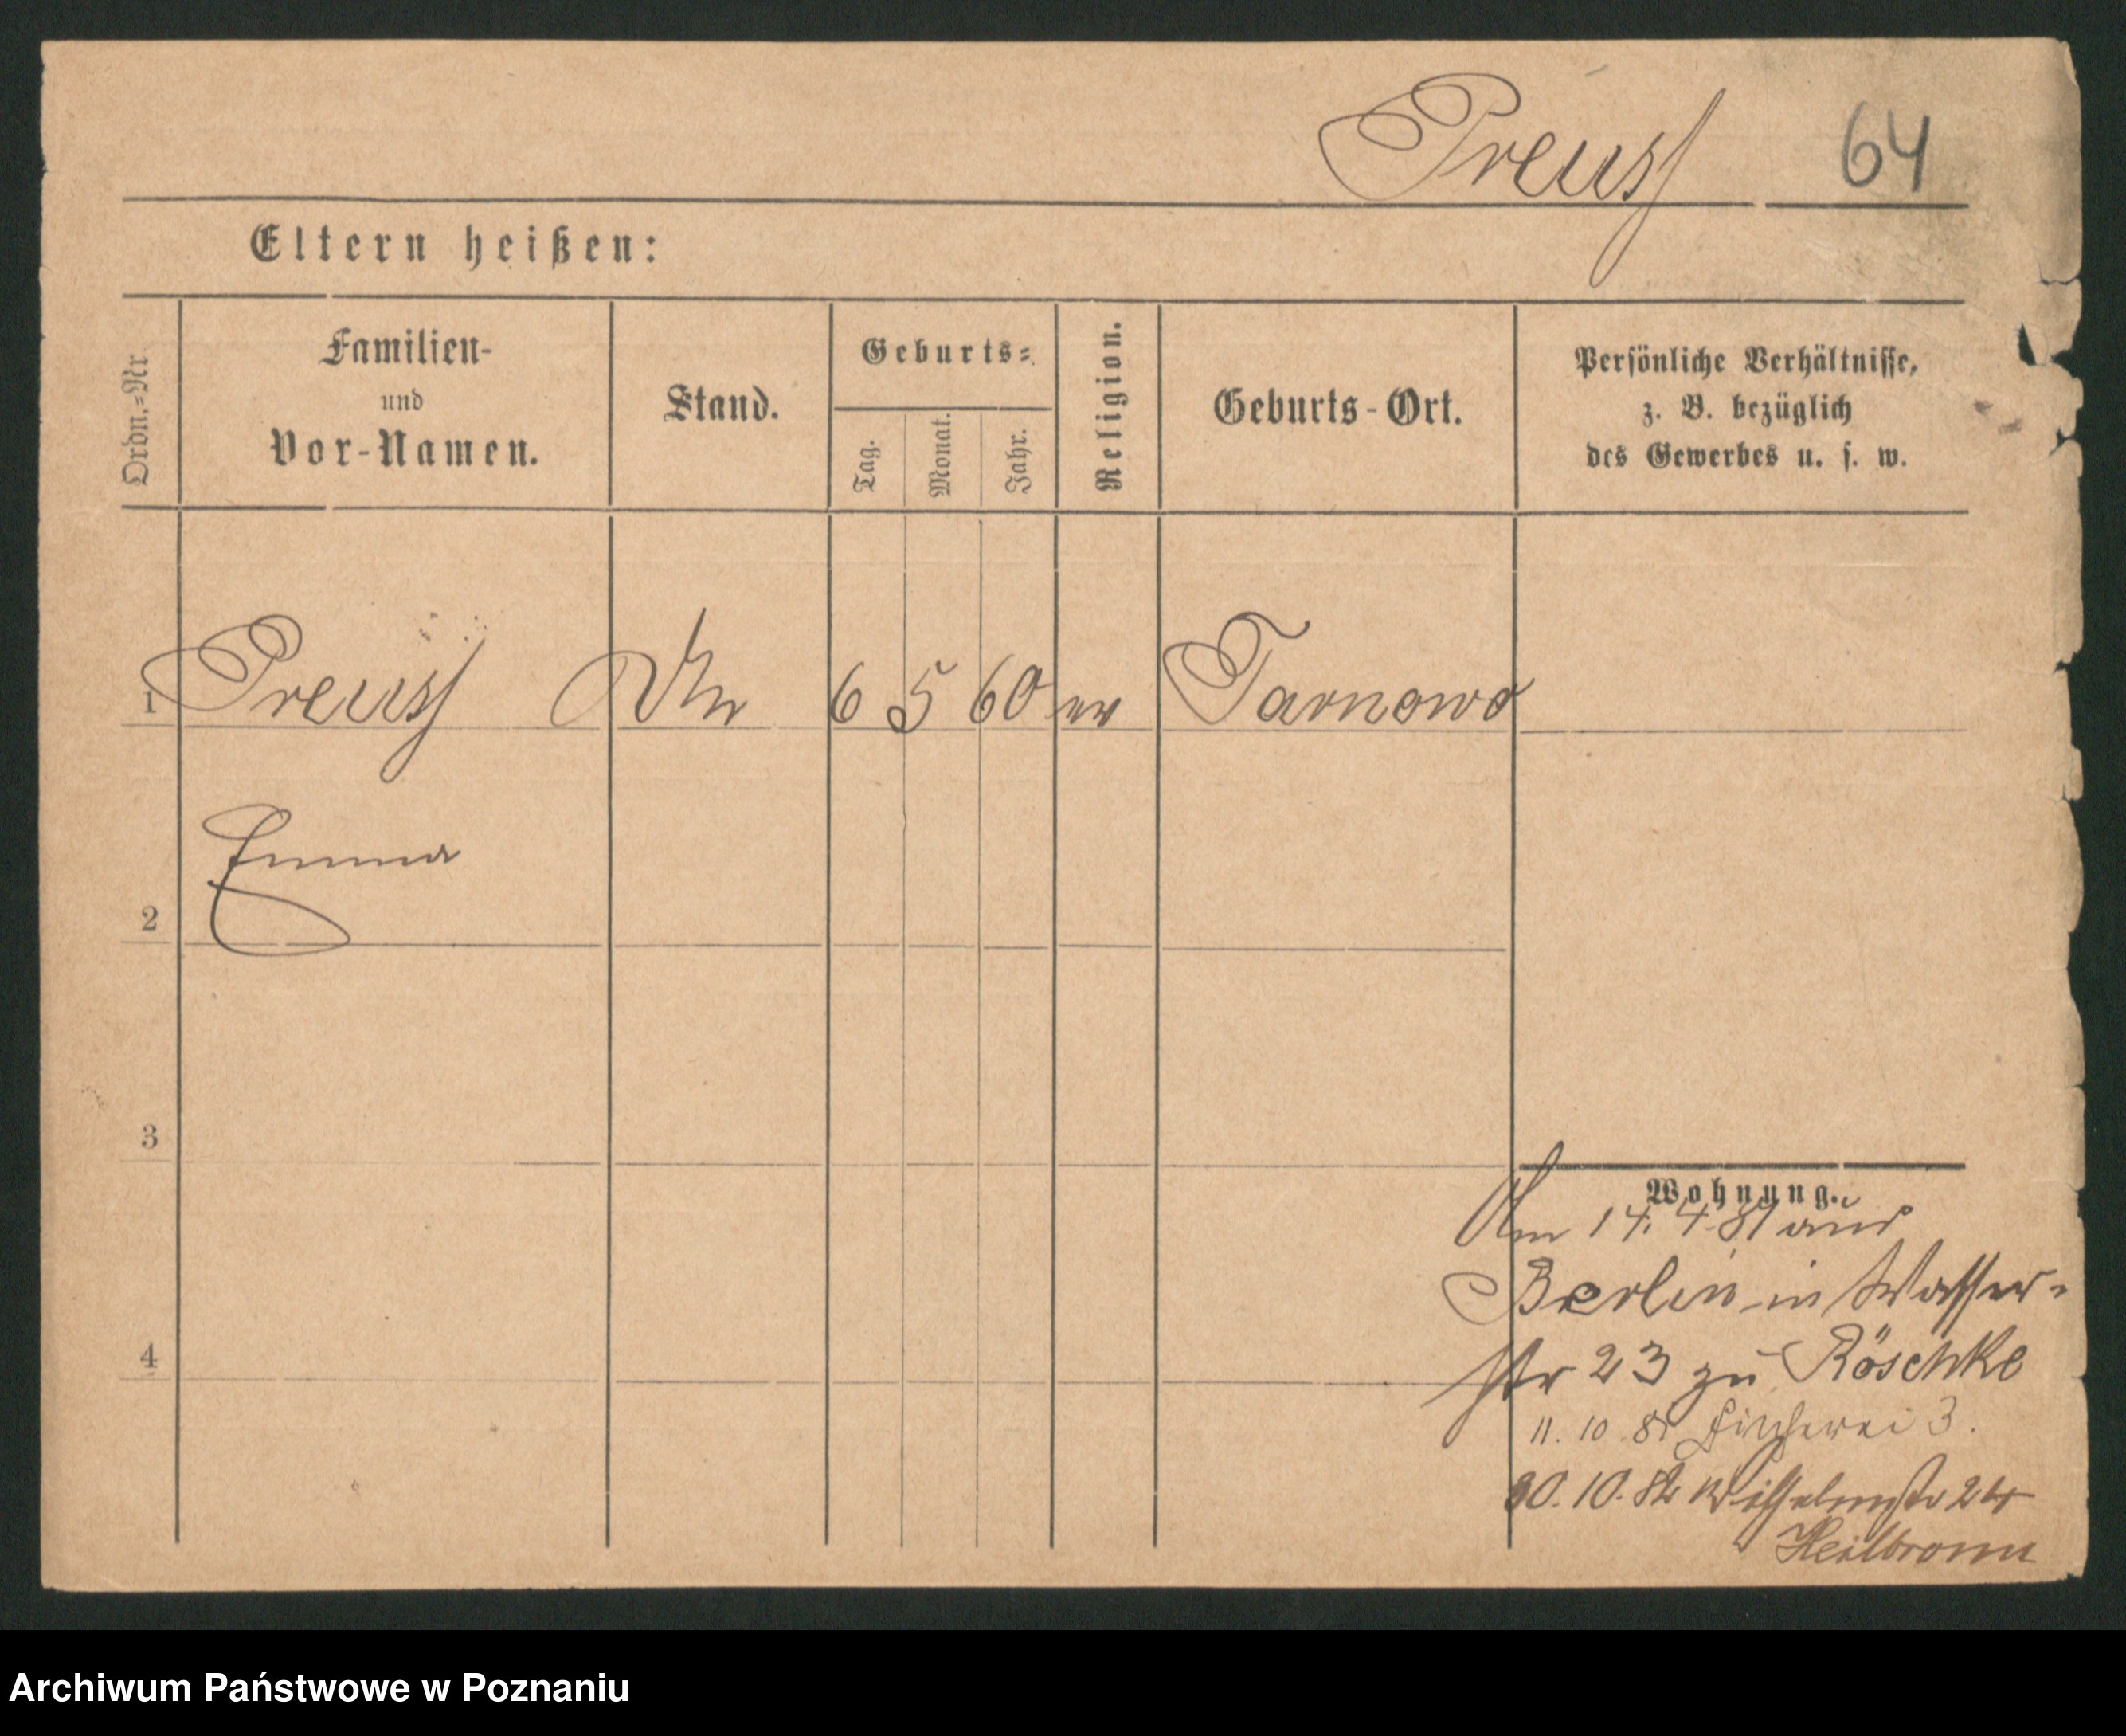 Preuss 64
Eltern heißen:
Ordn.-Nr
Familien-
und
Vor-Namen.
Stand.
Geburts-
Tag.
Monat.
Jahr.
Religion.
Geburts-Ort.
Persönliche Verhältnisse,
z. B. bezüglich
des Gewerbes u. s. w.
1 Preuss 6 5 60 ev Tarnowo
Emma
2
3
Wohnung.
Am 14. 4. 81 aus
Berlin in Wasser-
4
str 23 zu Röschke
11. 10. 81 Fischerei 3.
30. 10. 82 Wilhelmstr 24
Heilbronn
Archiwum Państwowe w Poznaniu